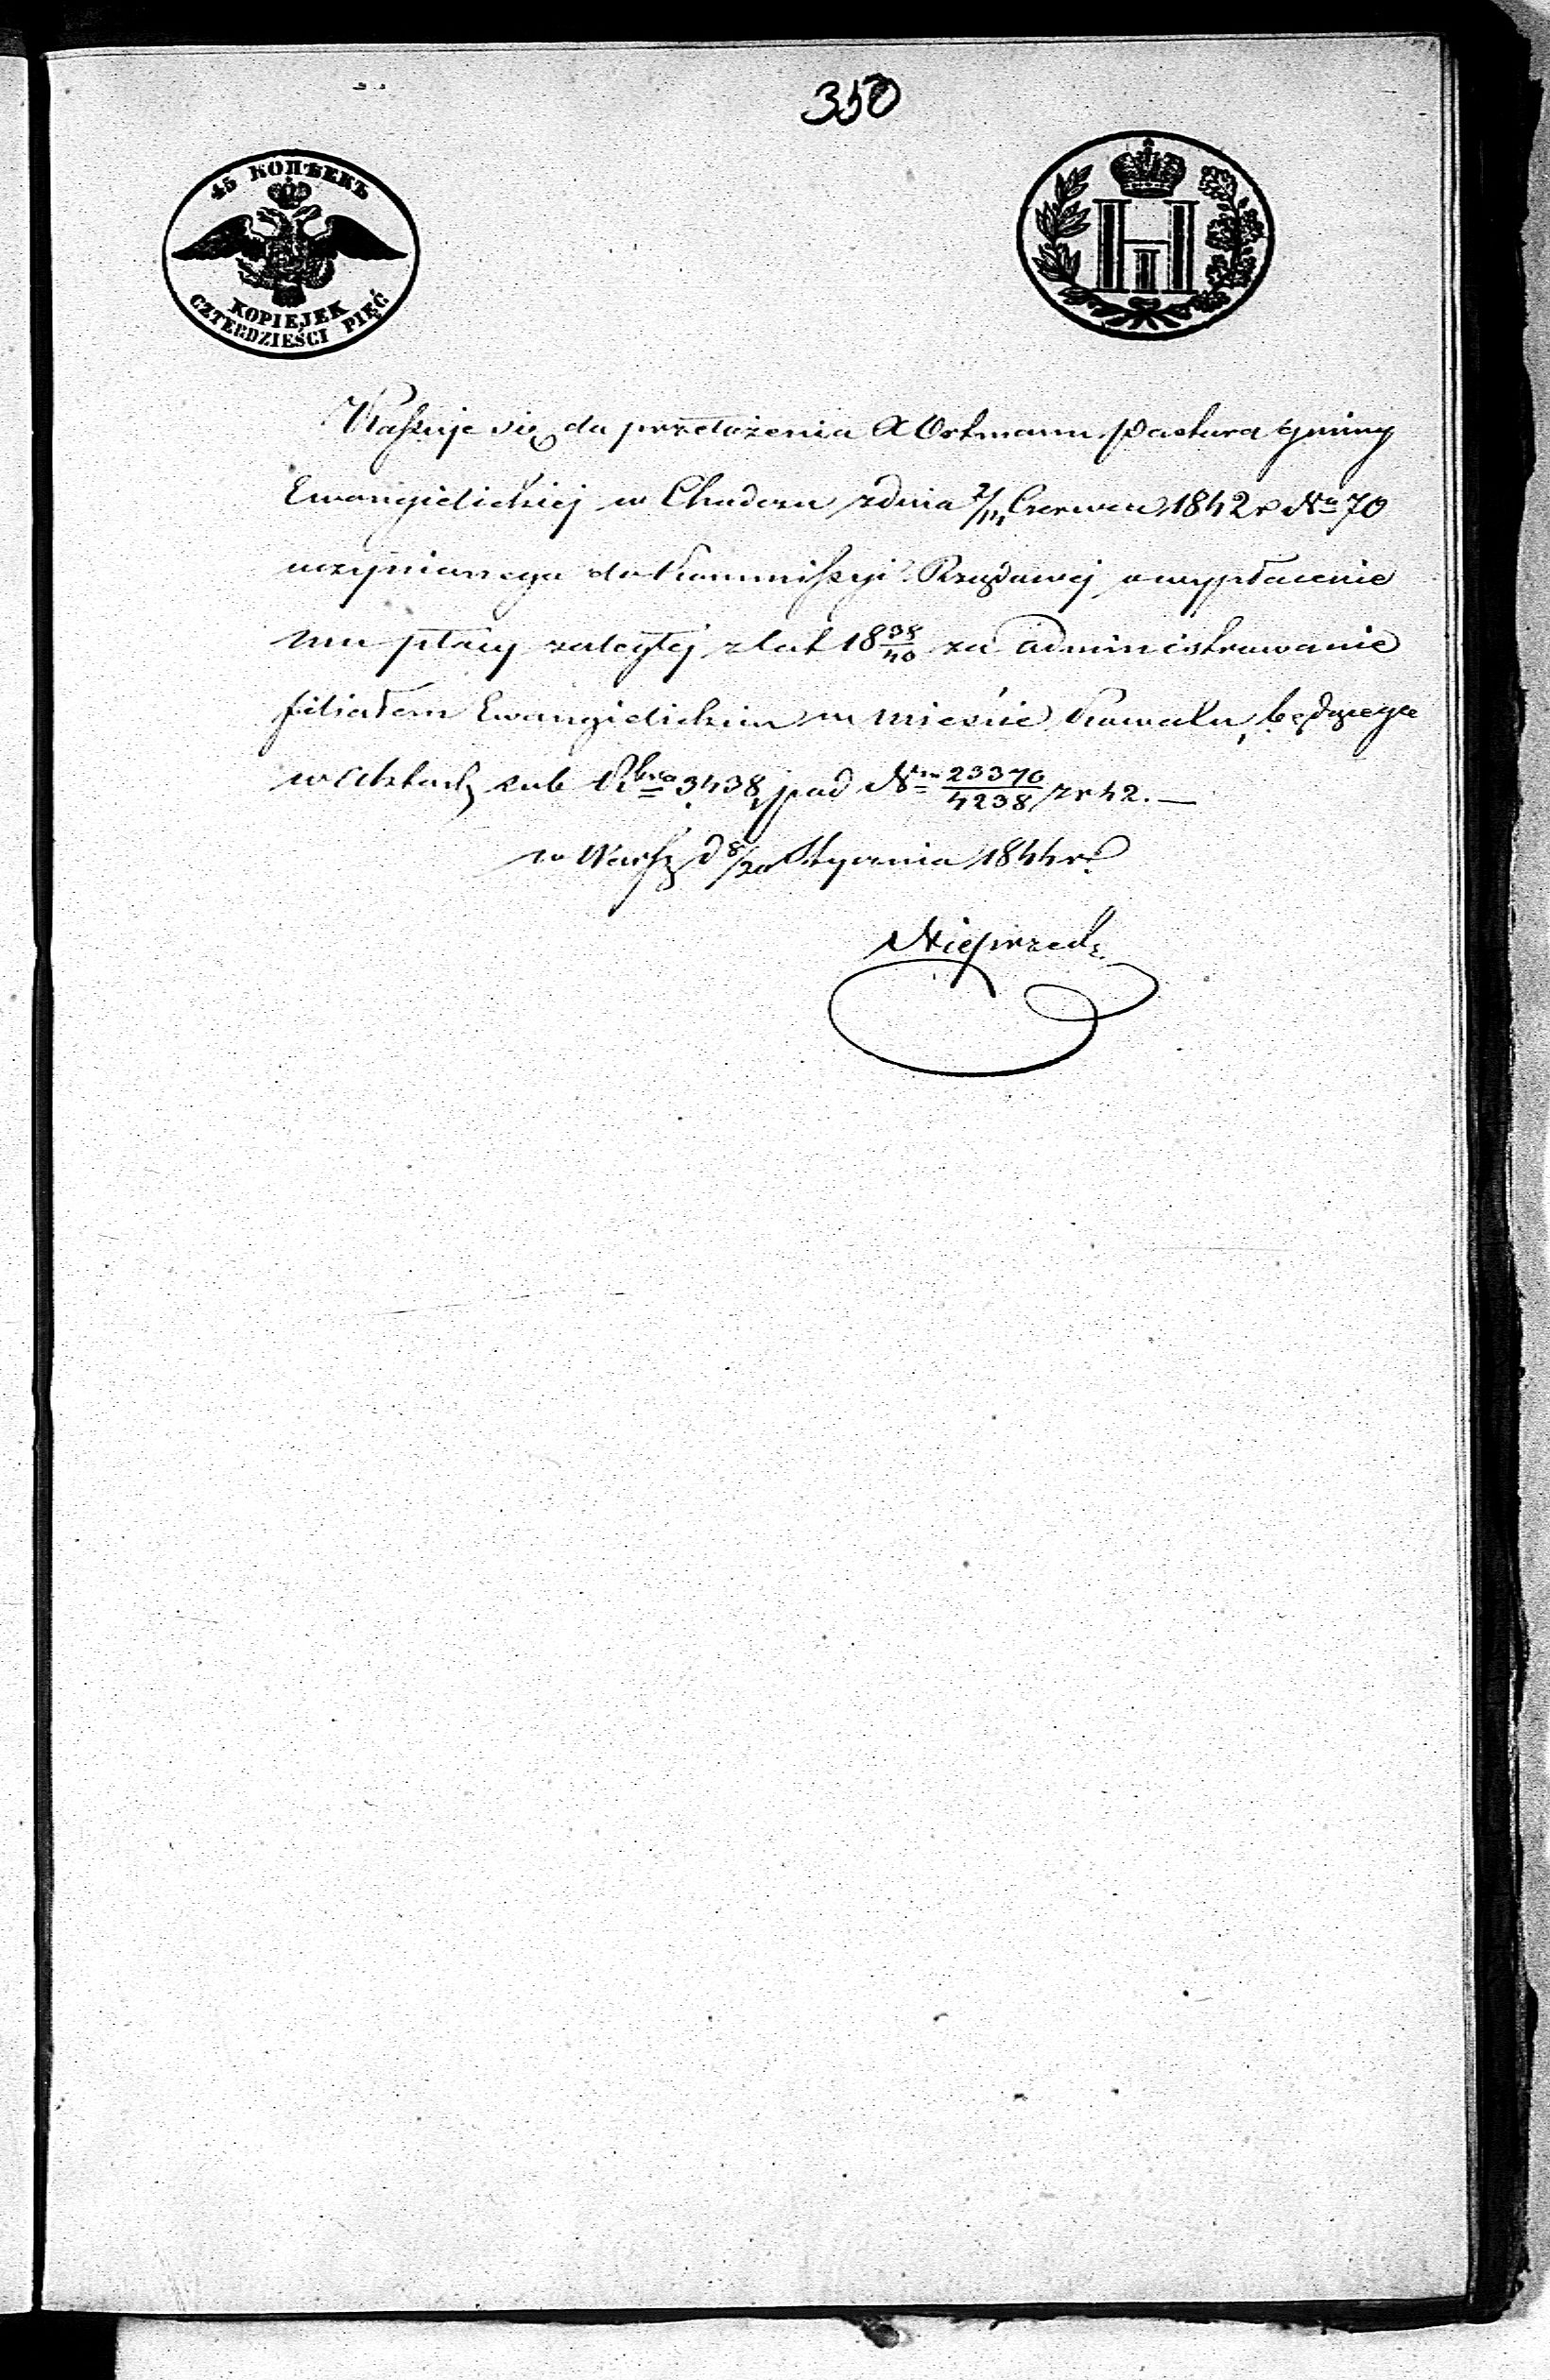 350
45 КОПѢЕКЪ
KOPIEJEK
CZTERDZIEŚCI PIĘĆ
Kassuje się do przełożenia X Ortmann Pastora Gminy
Ewangielickiej w Chodczu z dnia 2/14 Czerwca 1842 r No 70
uczynionego do Kommissyi Rządowej o wypłacenie
mu płacy zaległej z lat 18 38/40 za administrowanie
filiałem Ewangielickim w mieście Kowalu, będącego
w Aktach sub 3438 pod Nrm 23370/4238 z r 42. —
w Warsz d 8/20 Stycznia 1844 r.